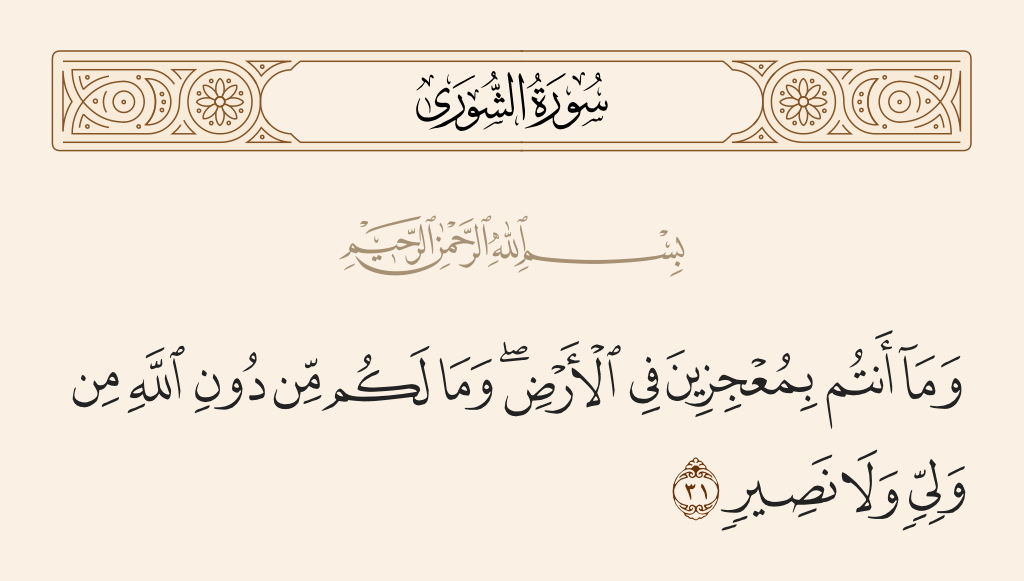 سُورَةُ الشُّورَىٰ
بِسْمِ ٱللَّهِ ٱلرَّحْمَٰنِ ٱلرَّحِيمِ
وَمَآ أَنتُم بِمُعْجِزِينَ فِى ٱلْأَرْضِ ۖ وَمَا لَكُم مِّن دُونِ ٱللَّهِ مِن
وَلِىٍّ وَلَا نَصِيرٍ ٣١